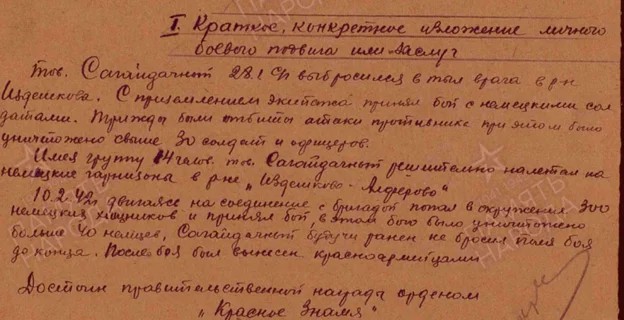 I. Краткое, конкретное изложение личного
боевого подвига или заслуг
Тов. Сагайдачный 28.1 с/г выбросился в тыл врага в р-н
Издешкова. С приземлением экипажа принял бой с немецкими сол
датами. Трижды были отбиты атаки противника при этом было
уничтожено свыше 30 солдат и офицеров.
Имея группу 14 человек тов. Сагайдачный решительно налетал на
немецкие гарнизона в р-не „Издешково-Алферово"
10.2.42г двигаясь на соединение с бригадой попал в окружение 300
немецких хищников и принял бой в этом бою было уничтожено
больше 40 немцев, Сагайдачный будучи ранен не бросил поля боя
до конца. После боя был вынесен красноармейцами
Достоин правительственной награды орденом
„Красное Знамя"
ПАМЯТЬ
НАРОДА